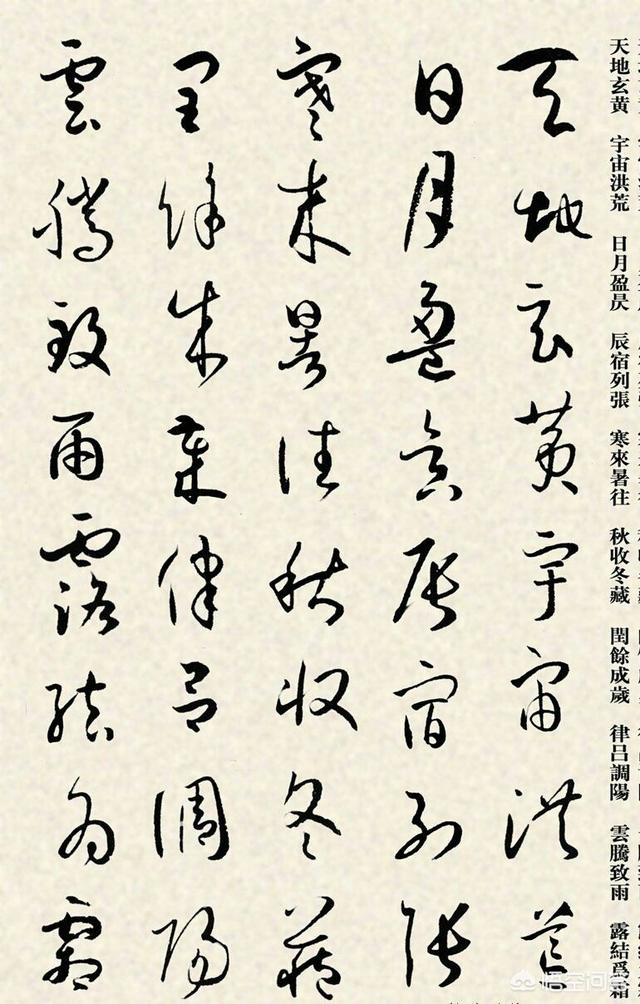 天地玄黃宇宙洪荒
日月盈昃辰宿列張
寒來暑往秋收冬藏
閏餘成歲律呂調陽
雲騰致雨露結為霜
天地玄黃 宇宙洪荒 日月盈昃 辰宿列張 寒來暑往 秋收冬藏 閏餘成歲 律呂調陽 雲騰致雨 露結爲霜
悟空问答